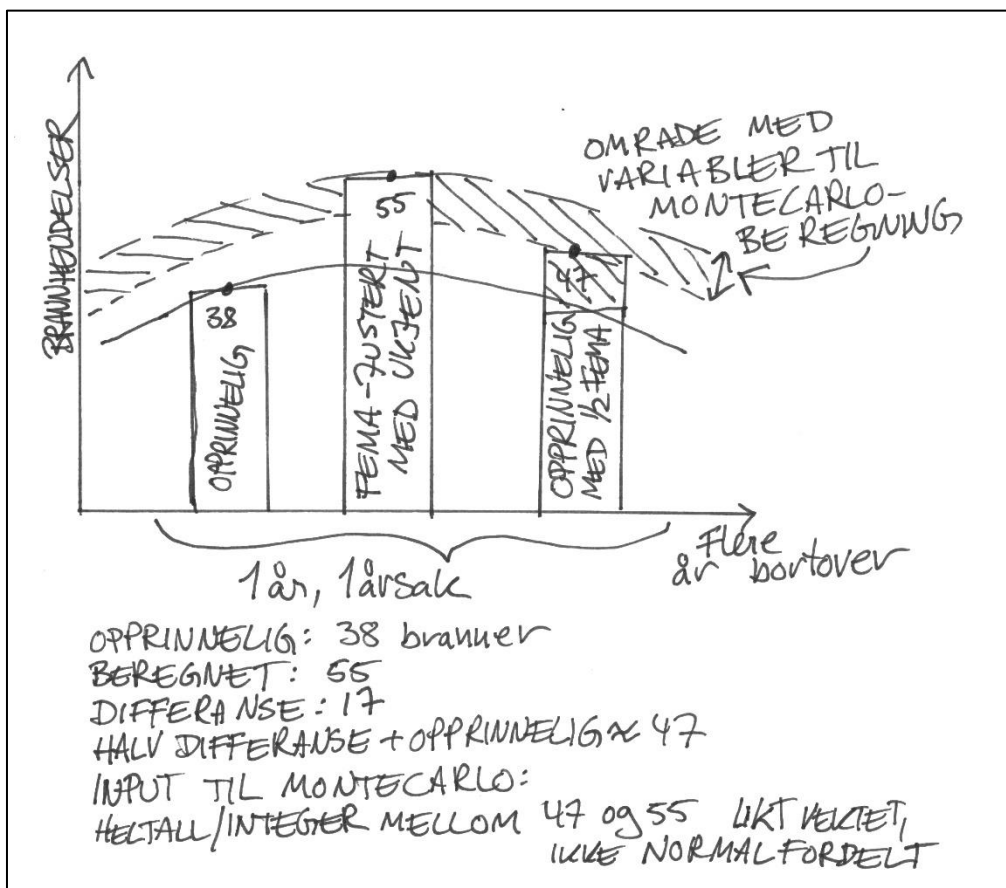 BRANNHENDELSER
OMRÅDE MED
VARIABLER TIL
MONTECARLO-
BEREGNING
38
OPPRINNELIG
55
FEMA-JUSTERT
MED UKJENT
47
OPPRINNELIG
MED 1/2 FEMA
Flere
år bortover
1 år, 1 årsak
OPPRINNELIG: 38 branner
BEREGNET: 55
DIFFERANSE: 17
HALV DIFFERANSE + OPPRINNELIG ≈ 47
INPUT TIL MONTECARLO:
HELTALL/INTEGER MELLOM 47 og 55 LIKT VEKTET,
IKKE NORMALFORDELT